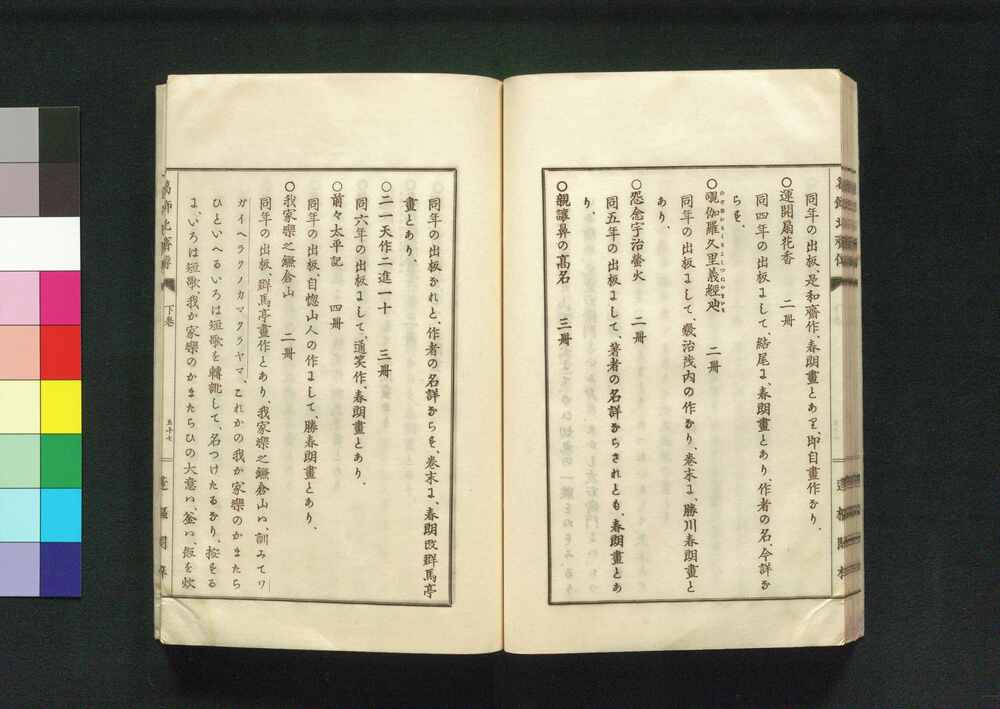 同年の出板、是和齋作、春朗畫とあり、即自畫作なり、
○運開扇花香　二冊
同四年の出板にして、結尾に、春朗畫とあり、作者の名、今詳な
らす、
○覗伽羅久里義經　二冊
同年の出板にして、幾治茂内の作なり、卷末に、勝川春朗畫と
あり、
○怨念宇治螢火　二冊
同五年の出板にして、著者の名詳ならされとも、春朗畫とあ
り、
○親讓鼻の高名　三冊
同年の出板なれと、作者の名詳ならす、卷末に、春朗改群馬亭
畫とあり、
○二一天作二進一十　三冊
同六年の出板にして、通笑作、春朗畫とあり、
○前々太平記　四冊
同年の出板、自惚山人の作にして、勝春朗畫とあり、
○我家樂之鎌倉山　二冊
同年の出板、群馬亭畫作とあり、我家樂之鎌倉山は、訓みてワ
ガイヘラクノカマクラヤマ、これかの我か家樂のかまたら
ひといへるいろは短歌を轉訛して、名つけたるなり、按する
に、いろは短歌、我か家樂のかまたらひの大意は、釜は、飯を炊
下卷
五十七